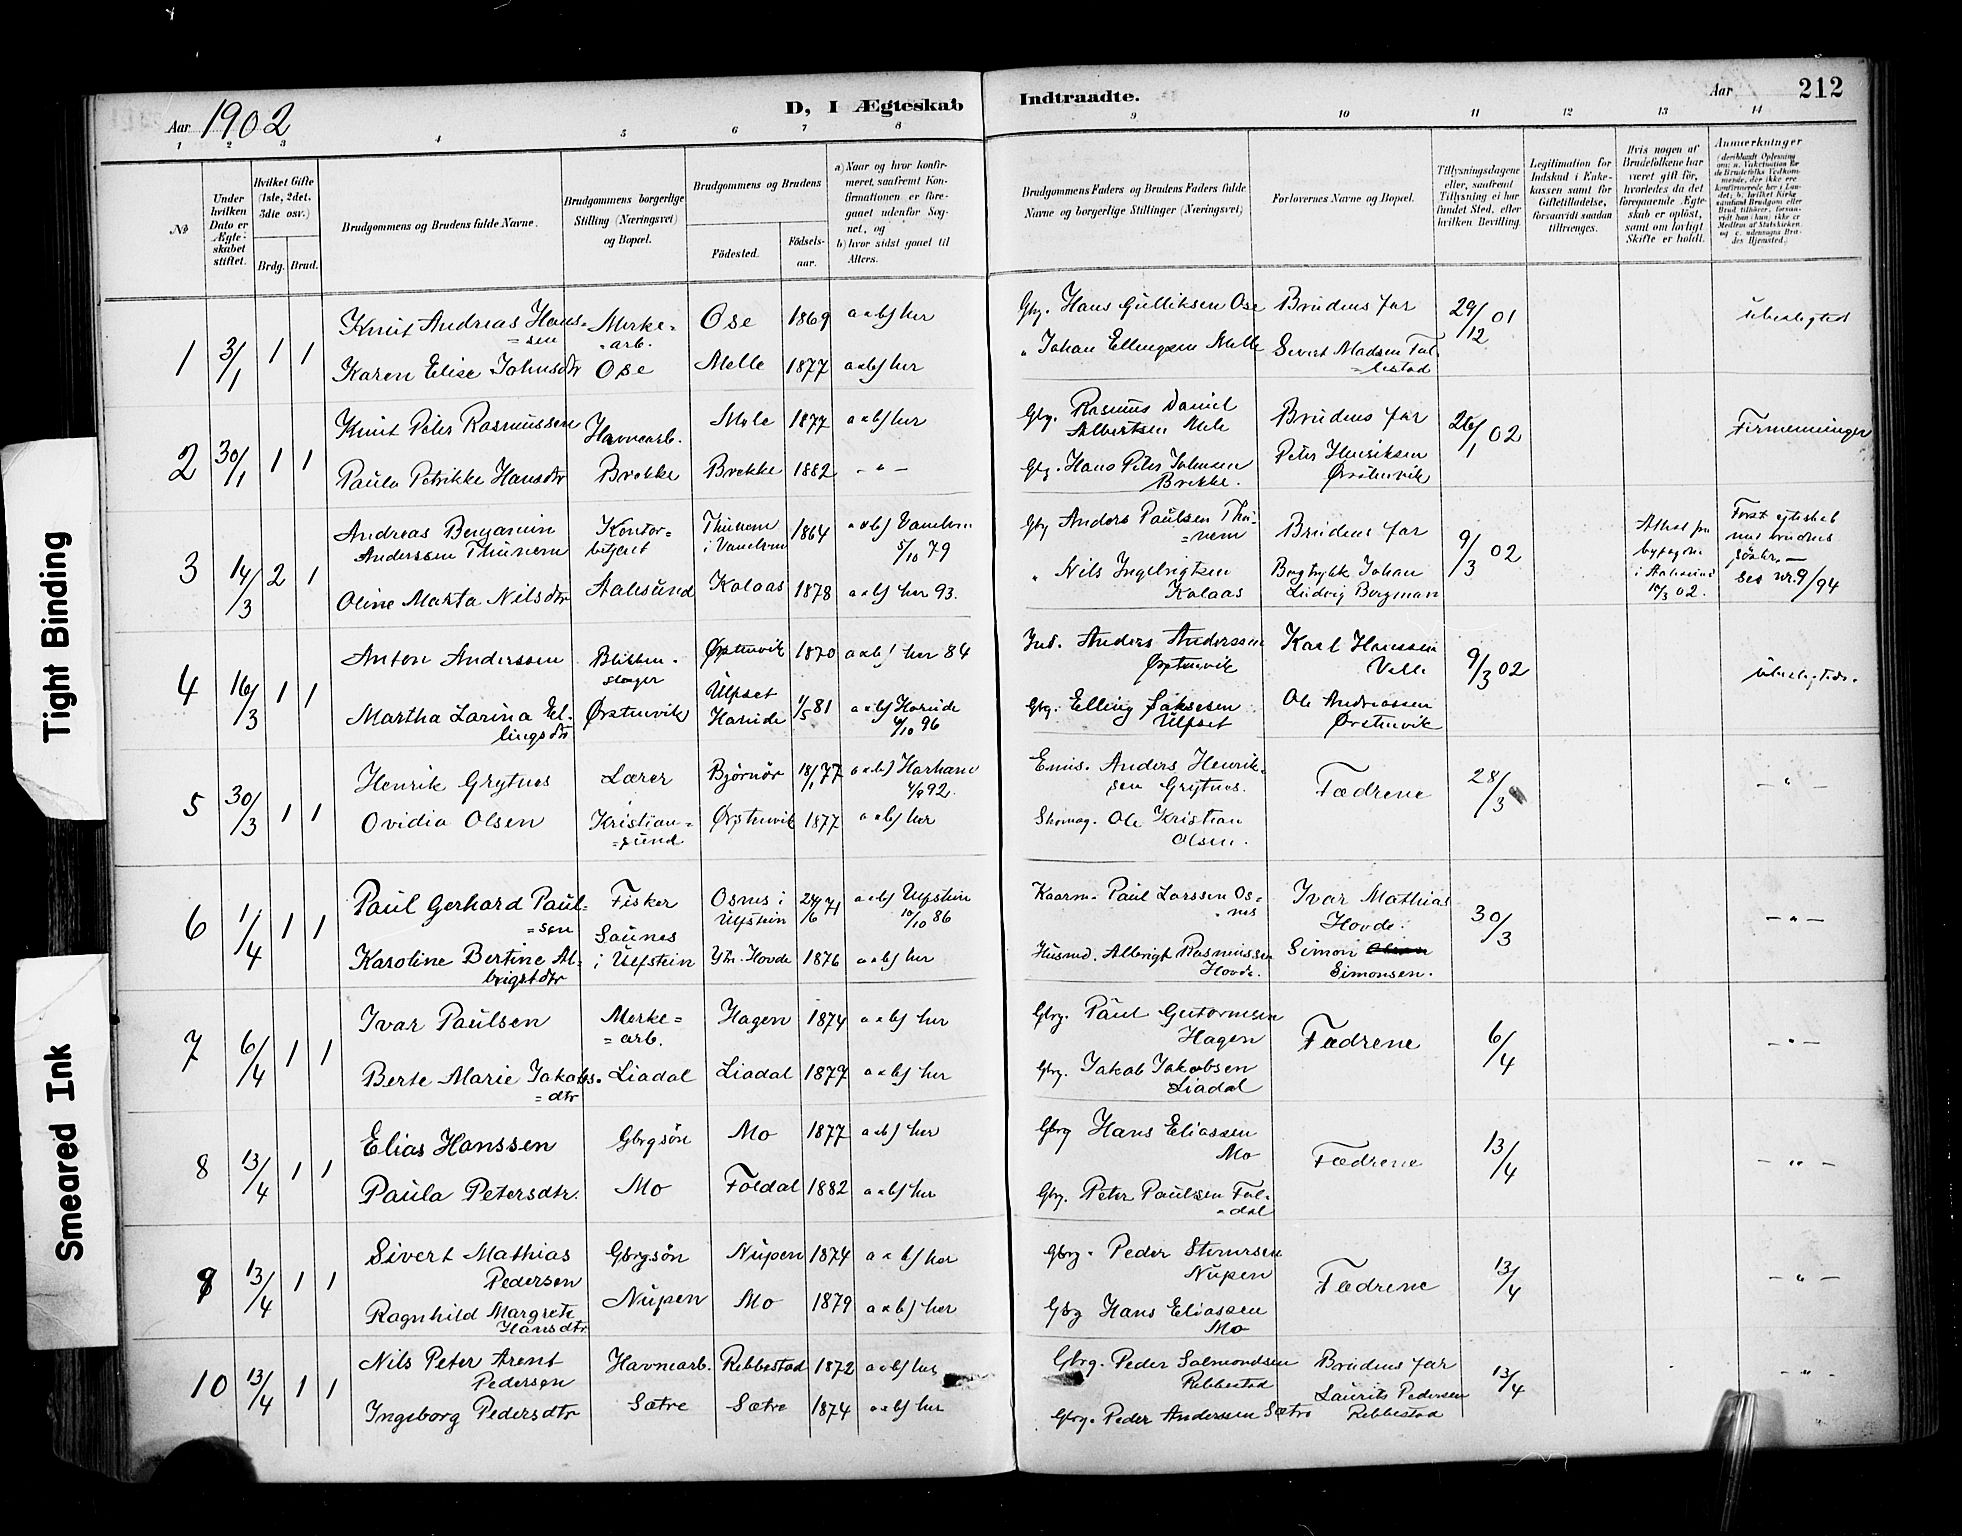 Tight Binding
Smeared Ink
Aar 1902
D, I Ægteskab Indtraadte.
Aar
212
1 2 3 4 5 6 7 8 9 10 11 12 13 14
No
Under hvilken Dato er Ægteskabet stiftet.
Hvilket Gifte (1ste, 2det, 3die osv.)
Brdg. Brud.
Brudgommens og Brudens fulde Navne.
Brudgommens borgerlige Stilling (Næringsvei) og Bopæl.
Brudgommens og Brudens
Födested.
Födsels-aar.
a) Naar og hvor konfirmeret, saafremt Konfirmationen er foregaaet udenfor Sognet, og
b) hvor sidst gaaet til Alters.
Brudgommens Faders og Brudens Faders fulde Navne og borgerlige Stillinger (Næringsvei)
Forlovernes Navne og Bopæl.
Tillysningsdagene eller, saafremt Tillysning ei har fundet Sted, efter hvilken Bevilling.
Legitimation for Indskud i Enkekassen samt for Giftetilladelse, forsaavidt saadan tiltrænges.
Hvis nogen af Brudefolkene har været gift før, hvorledes da det foregaaende Ægteskab er oplöst, samt om lovligt Skifte er holdt.
Anmærkninger
1 3/1 1 1 Knut Andreas Hans=
=sen
Merke=
=arb.
Ose 1869 a&b) her
Gbg. Hans Gulliksen Ose
Brudens far
29/12 01
ubeslegted
Karen Elise Johnsdtr Ose Melle 1877 a&b) her
" Johan Ellingsen Melle
Sivert Madsen Fal=
=lestad
2 30/1 1 1 Knut Peter Rasmussen Havnearb. Mele 1877 a&b) her
Gbg. Rasmus Daniel
Albertsen Mele
Brudens far
26/1 02
Firmenninger
Paula Petrikke Hansdtr Brekke Brekke 1882 - " -
Gbg. Hans Peter Johnsen
Brekke.
Peter Henriksen
Ørstenvik
3 14/3 2 1 Andreas Benjamin
Anderssen Thunem
Kontor=
betjent
Thunem
i Vanelven
1864 a&b) Vanelven
5/10 79
Gbg Anders Paulsen Thu=
=nem
Brudens far
9/3 02
Attest fra
byfogden
i Aalesund
10/3 02.
Först egteskab
med brudens
söster. —
ses nr. 9/94
Oline Marta Nilsdtr Aalesund Kolaas 1878 a&b) her 93.
" Nils Ingebrigtsen
Kolaas
Bogtrykk Johan
Ludvig Bergman
4 16/3 1 1 Anton Anderssen Blikken-
slager
Ørstenvik 1870 a&b) her 84
Ind. Anders Anderssen
Ørstenvik
Karl Hanssen
Velle
9/3 02
ubeslegtede.
Martha Larina El=
lingsdtr
Ørstenvik
Ulfset
Hareide
1/5 81 a&b) Hareide
4/10 96
Gbg. Elling Jakobsen
Ulfset
Ole Andreassen
Ørstenvik
5 30/3 1 1 Henrik Grytnes Lærer Bjørnør 18/1 77 a&b) Harham
4/9 92.
Emis. Anders Henrik=
sen Grytnes.
Fædrene
28/3
- " -
Ovidia Olsen Kristian=
=sund
Ørstenvik 1877 a&b) her
Skomag. Ole Kristian
Olsen.
6 1/4 1 1 Paul Gerhard Paul=
=sen
Fisker
Saunes
i Ulfstein
Osnes i
Ulfstein
24/6 71 a&b) Ulfstein
10/10 86
Kaarm. Paul Larssen Os=
=nes
Ivar Mathias
Hovde.
30/3
- " -
Karoline Bertine Al=
brigtdtr
Ytr. Hovde 1876 a&b) her
Husmd. Albrigt Rasmussen
Hovde.
Simon
Simonsen.
7 6/4 1 1 Ivar Paulsen Merke=
=arb.
Hagen 1874 a&b) her
Gbrg. Paul Gutormsen
Hagen
Fædrene
6/4
- " -
Berte Marie Jakobs=
=dtr
Liadal Liadal 1879 a&b) her
Gbrg. Jakob Jakobsen
Liadal
8 13/4 1 1 Elias Hanssen Gbrgsön Mo 1877 a&b) her
Gbrg Hans Eliassen
Mo
Fædrene
13/4
- " -
Paula Petersdtr. Mo Foldal 1882 a&b) her
Gbrg. Peter Paulssen Fol=
=dal
9 13/4 1 1 Sivert Mathias
Pedersen
Gbrgsön Nupen 1874 a&b) her
Gbrg. Peder Steinrsen
Nupen
Fædrene
13/4
- " -
Ragnhild Margrete
Hansdtr
Nupen Mo 1879 a&b) her
Gbg Hans Eliassen
Mo
10 13/4 1 1 Nils Peter Arent
Pedersen
Havnearb. Rebbestad 1872 a&b) her
Gbrg. Peder Salmondsen
Rebbestad
Brudens far
13/4
- " -
Ingeborg Pedersdtr Sætre Sætre 1874 a&b) her
Gbrg. Peder Anderssen Sætre
Laurits Pedersen
Rebbestad